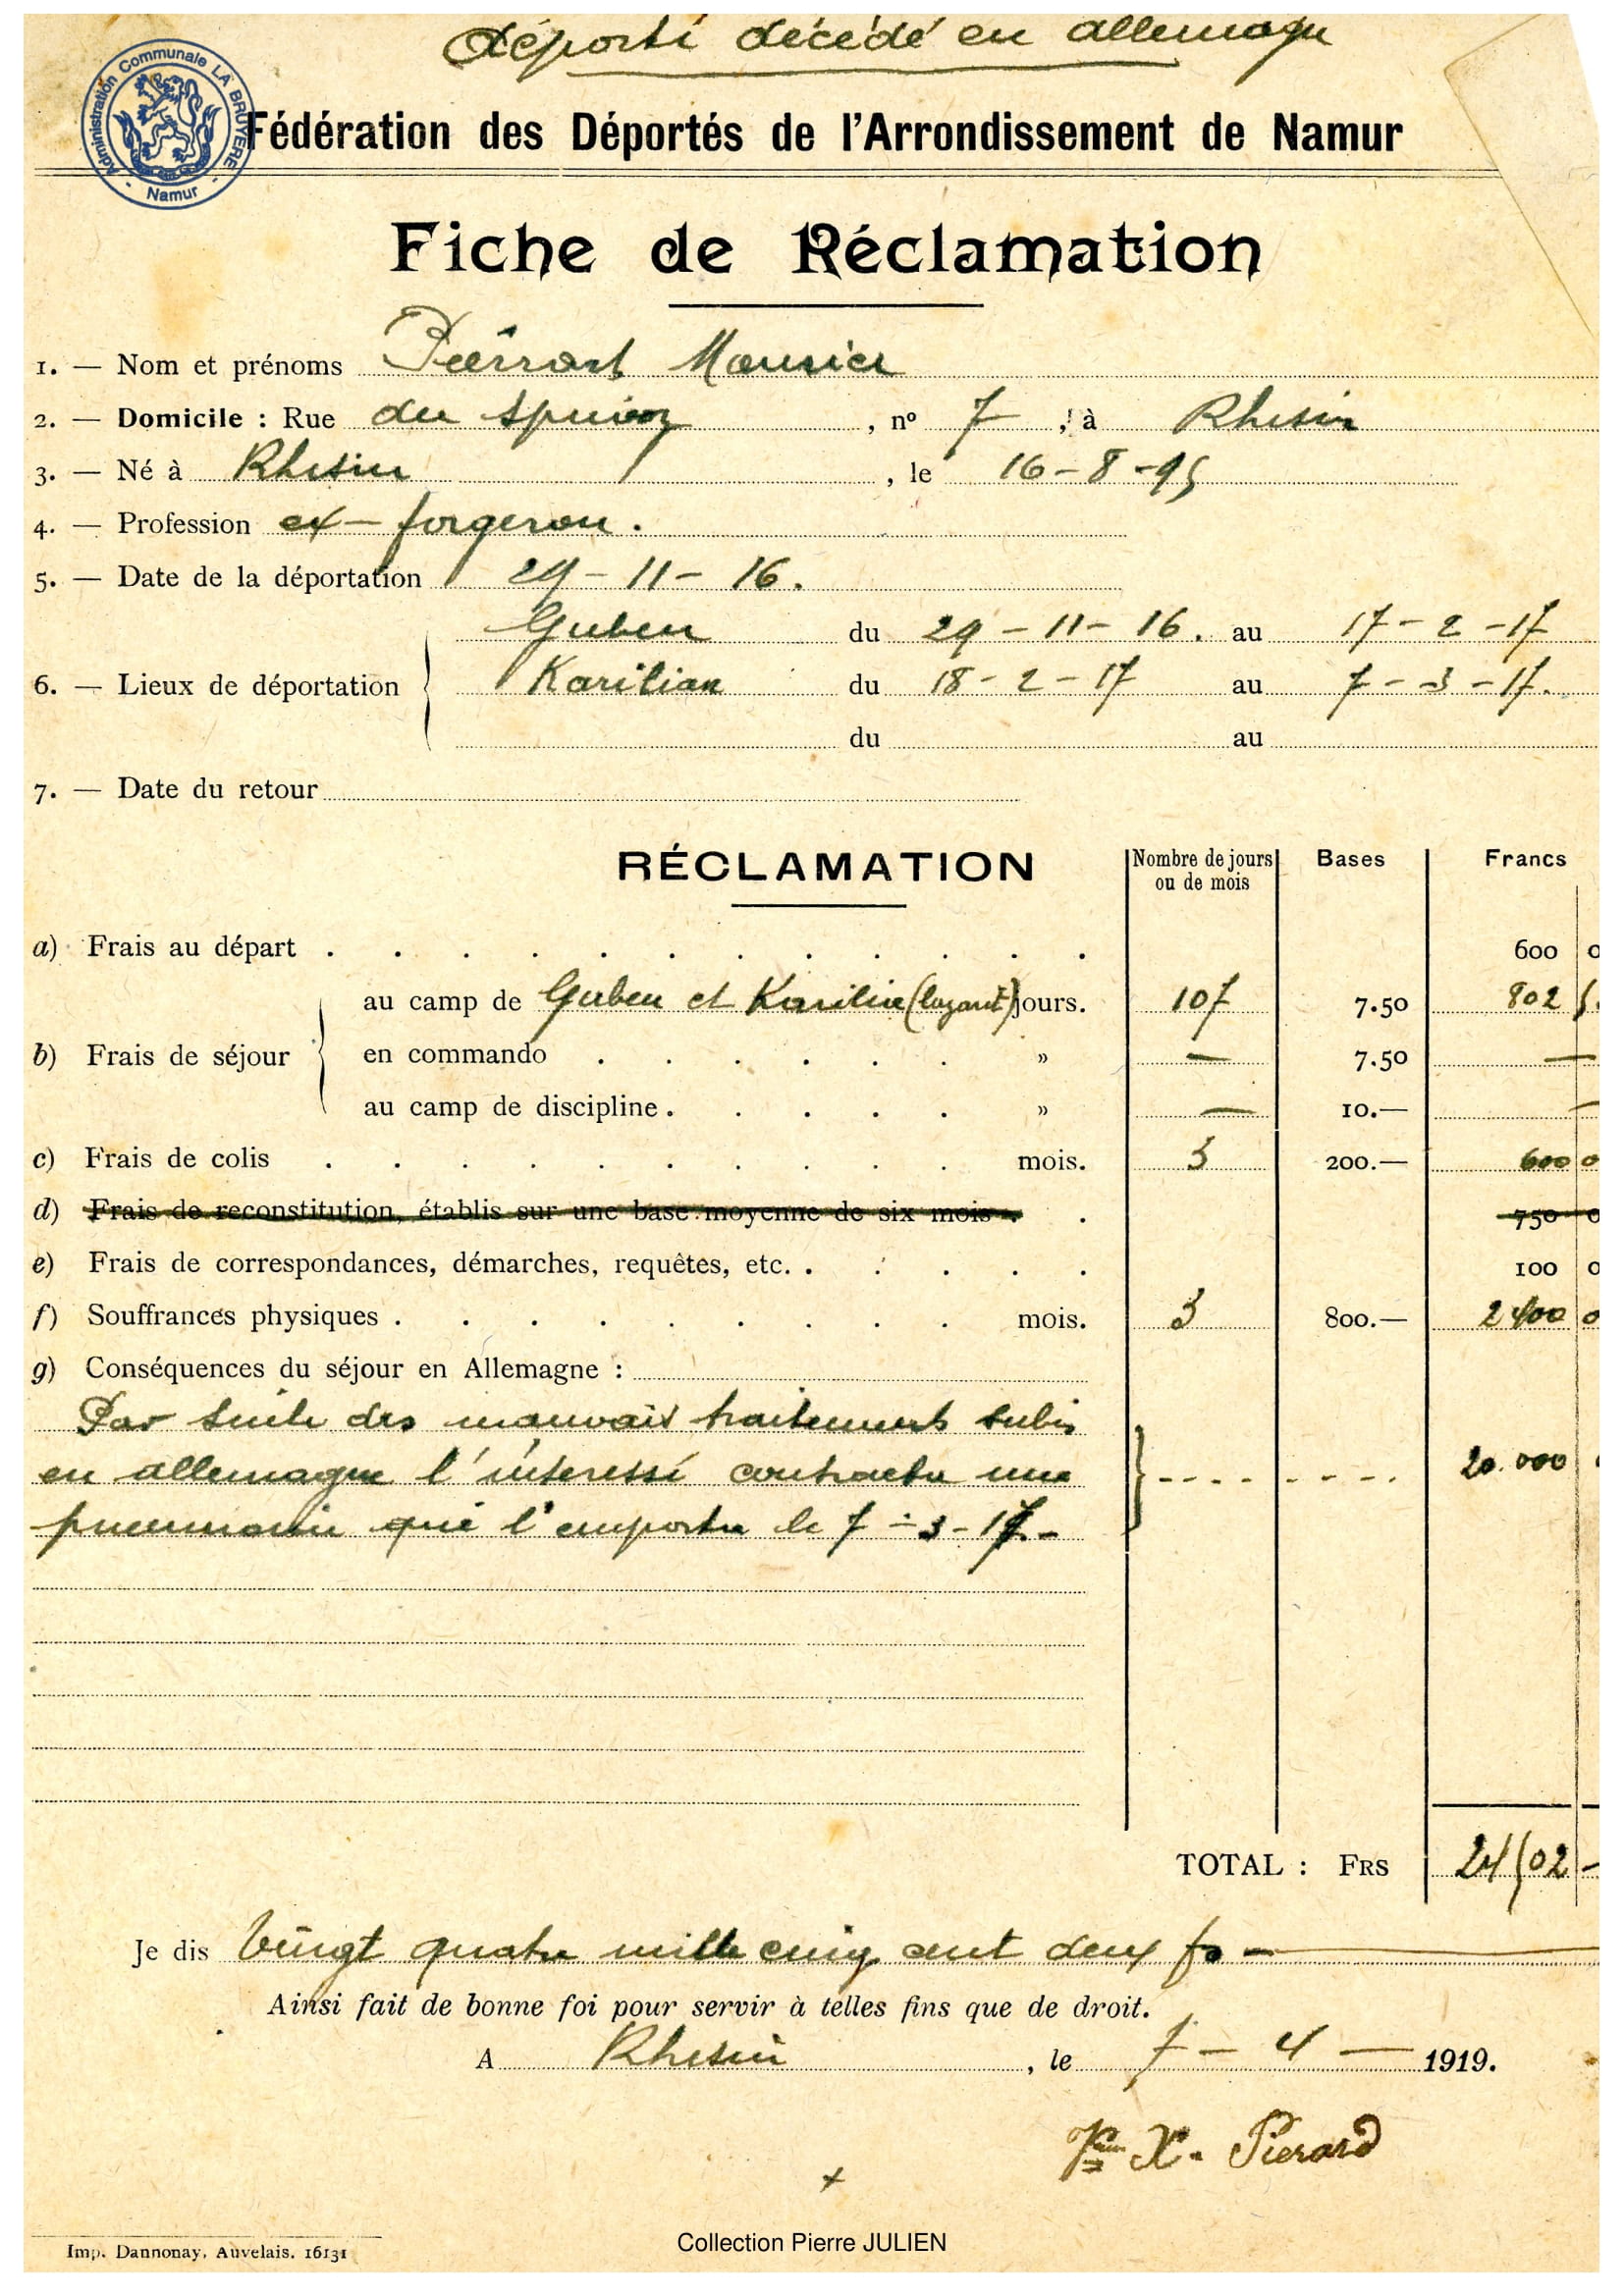 Déporté décédé en allemagne
Administration Communale LA BRUYERE - Namur -
Fédération des Déportés de l'Arrondissement de Namur
Fiche de Réclamation
1. — Nom et prénoms
2. — Domicile : Rue du , n° 7 , à Rhisin
3. — Né à Rhisin , le 16-8-95
4. — Profession ex-forgeron.
5. — Date de la déportation 29-11-16.
Guben du 29-11-16. au 17-2-17
6. — Lieux de déportation du 18-2-17 au 7-3-17.
du au
7. — Date du retour
RÉCLAMATION
Nombre de jours ou de mois Bases Francs
a) Frais au départ . . . . . . . . . . . . 600 0
au camp de Guben et jours. 107 7.50 802 5.
b) Frais de séjour en commando . . . . . . » — 7.50 —
au camp de discipline . . . . . » — 10.— —
c) Frais de colis . . . . . . . . . . mois. 3 200.— 600 0
d) Frais de reconstitution, établis sur une base moyenne de six mois . . 750 0
e) Frais de correspondances, démarches, requêtes, etc. . . . . . 100 0
f) Souffrances physiques . . . . . . . . . mois. 3 800.— 2400 0
g) Conséquences du séjour en Allemagne :
Par suite des mauvais traitements subis
en allemagne l'interessé contracta une
pneumonie qui l'emporta le 7-3-17.-
20.000
TOTAL : FRS 24502 -
Je dis Vingt quatre mille cinq cent deux fs —
Ainsi fait de bonne foi pour servir à telles fins que de droit.
A Rhisin , le 7 - 4 — 1919.
X. Pierard
Imp. Dannonay, Auvelais. 16131
Collection Pierre JULIEN